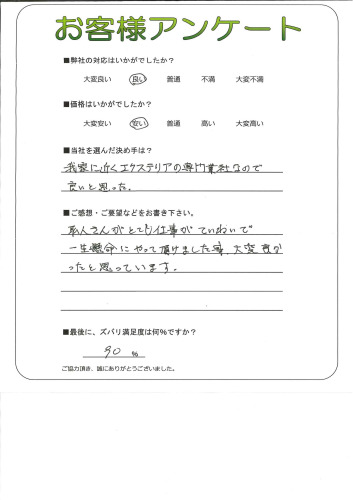 お客様アンケート
■弊社の対応はいかがでしたか?
大変良い 良い 普通 不満 大変不満
■価格はいかがでしたか?
大変安い 安い 普通 高い 大変高い
■当社を選んだ決め手は?
我家に近くエクステリアの専門業社なので
良いと思った。
■ご感想・ご要望などをお書き下さい。
職人さんがとても仕事がていねいで
一生懸命にやって頂けました事、大変良か
ったと思っています。
■最後に、ズバリ満足度は何%ですか?
90 %
ご協力頂き、誠にありがとうございました。